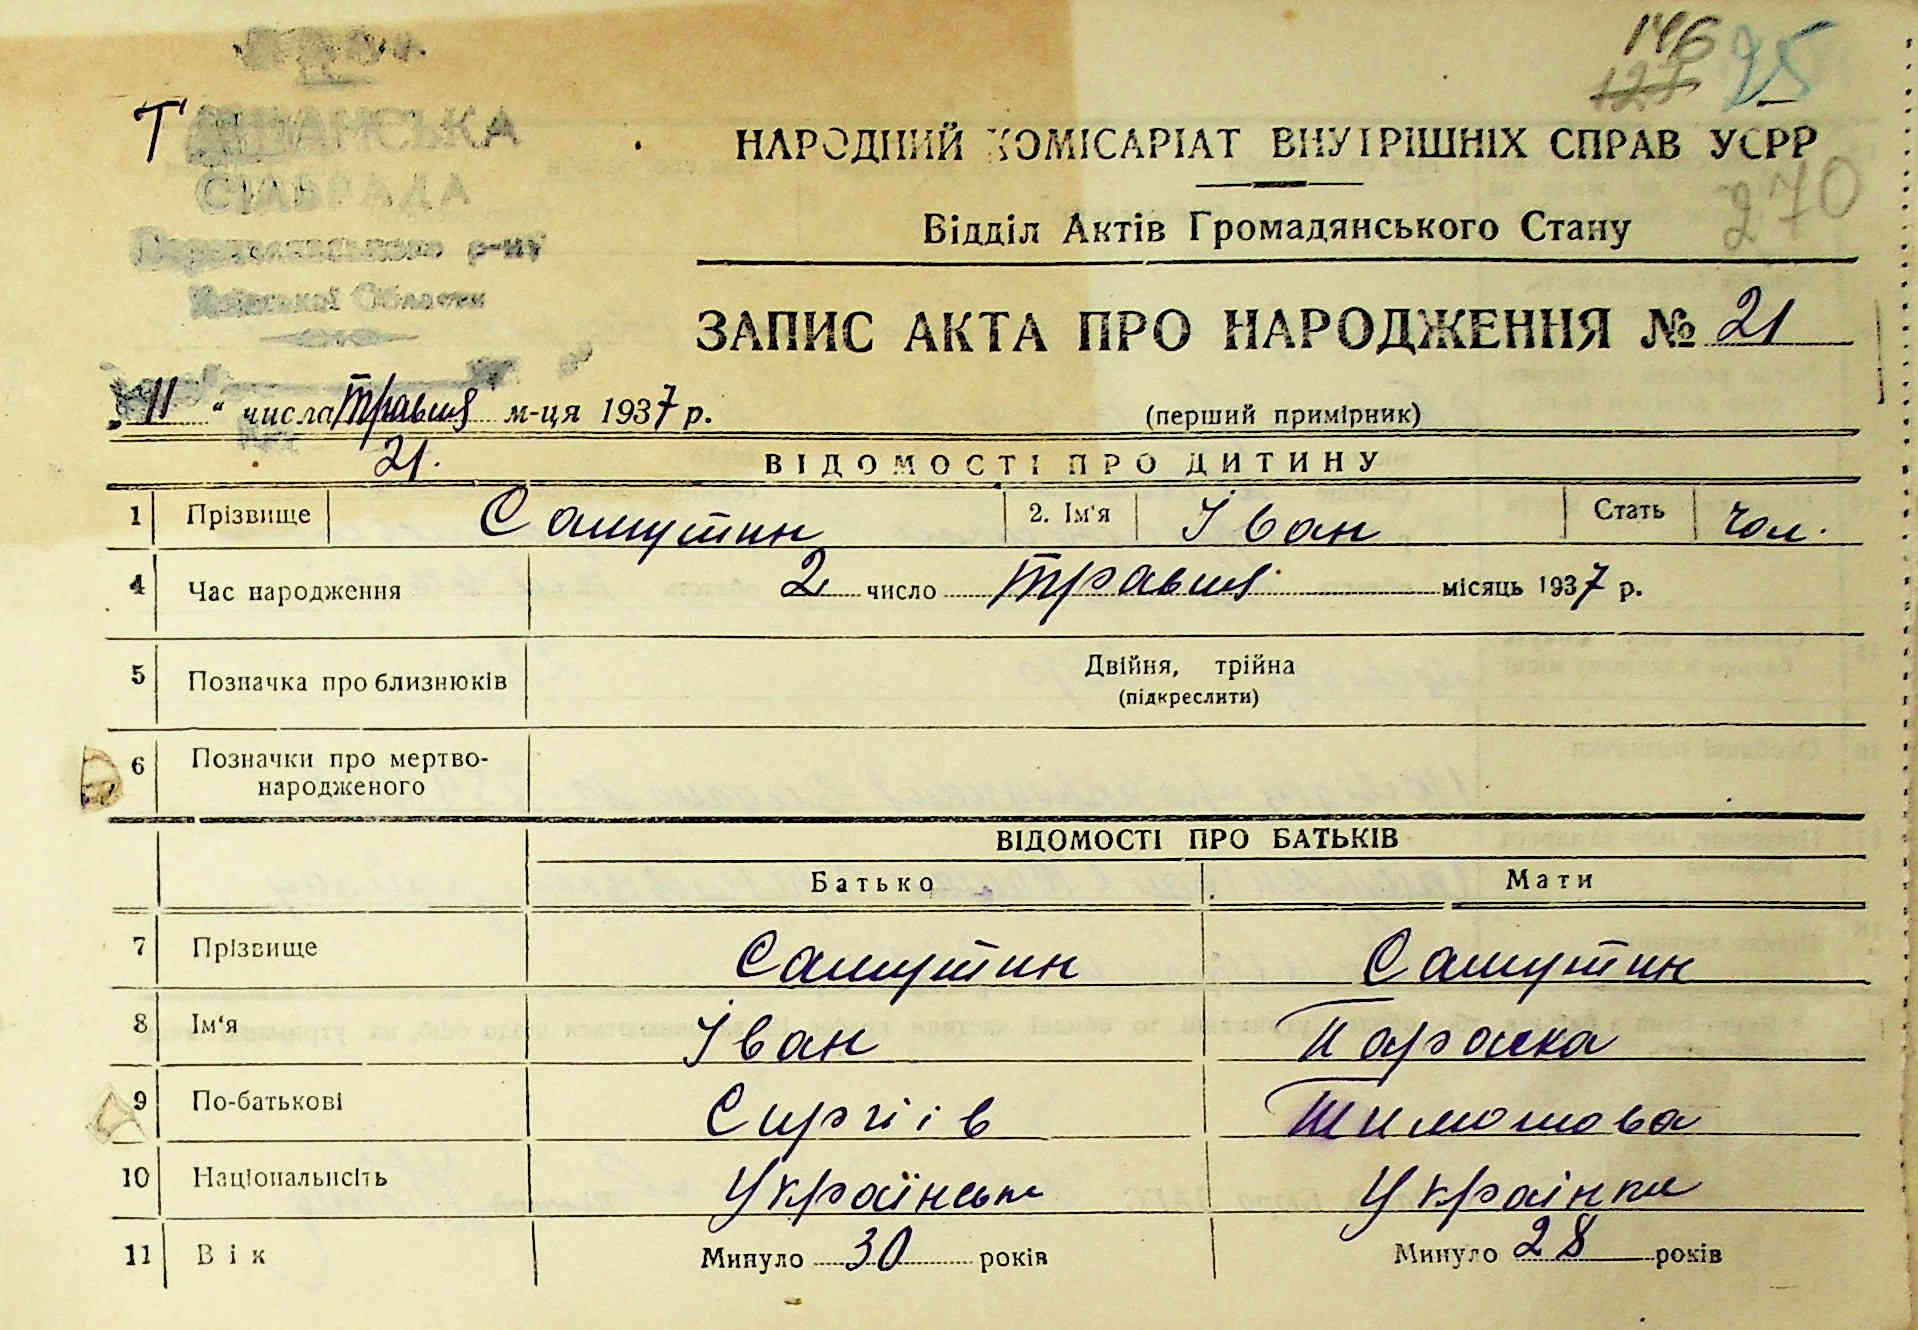 146 95
127
Т
НАРОДНИЙ КОМІСАРІАТ ВНУТРІШНІХ СПРАВ УСРР
СІЛЬРАДА
270
р-ну
Відділ Актів Громадянського Стану
Київської Области
ЗАПИС АКТА ПРО НАРОДЖЕННЯ № 21
„11“ числа Травня м-ця 1937 р.
(перший примірник)
21.
ВІДОМОСТІ ПРО ДИТИНУ
1 Прізвище Самутин 2. Ім'я Іван Стать чол.
4 Час народження 2 число Травня місяць 1937 р.
5 Позначка про близнюків Двійня, трійна
(підкреслити)
6 Позначки про мертво-
народженого
ВІДОМОСТІ ПРО БАТЬКІВ
Батько Мати
7 Прізвище Самутин Самутин
8 Ім'я Іван Параска
9 По-батькові Сиргіів Тимошова
10 Національність Українець Українка
11 Вік Минуло 30 років Минуло 28 років